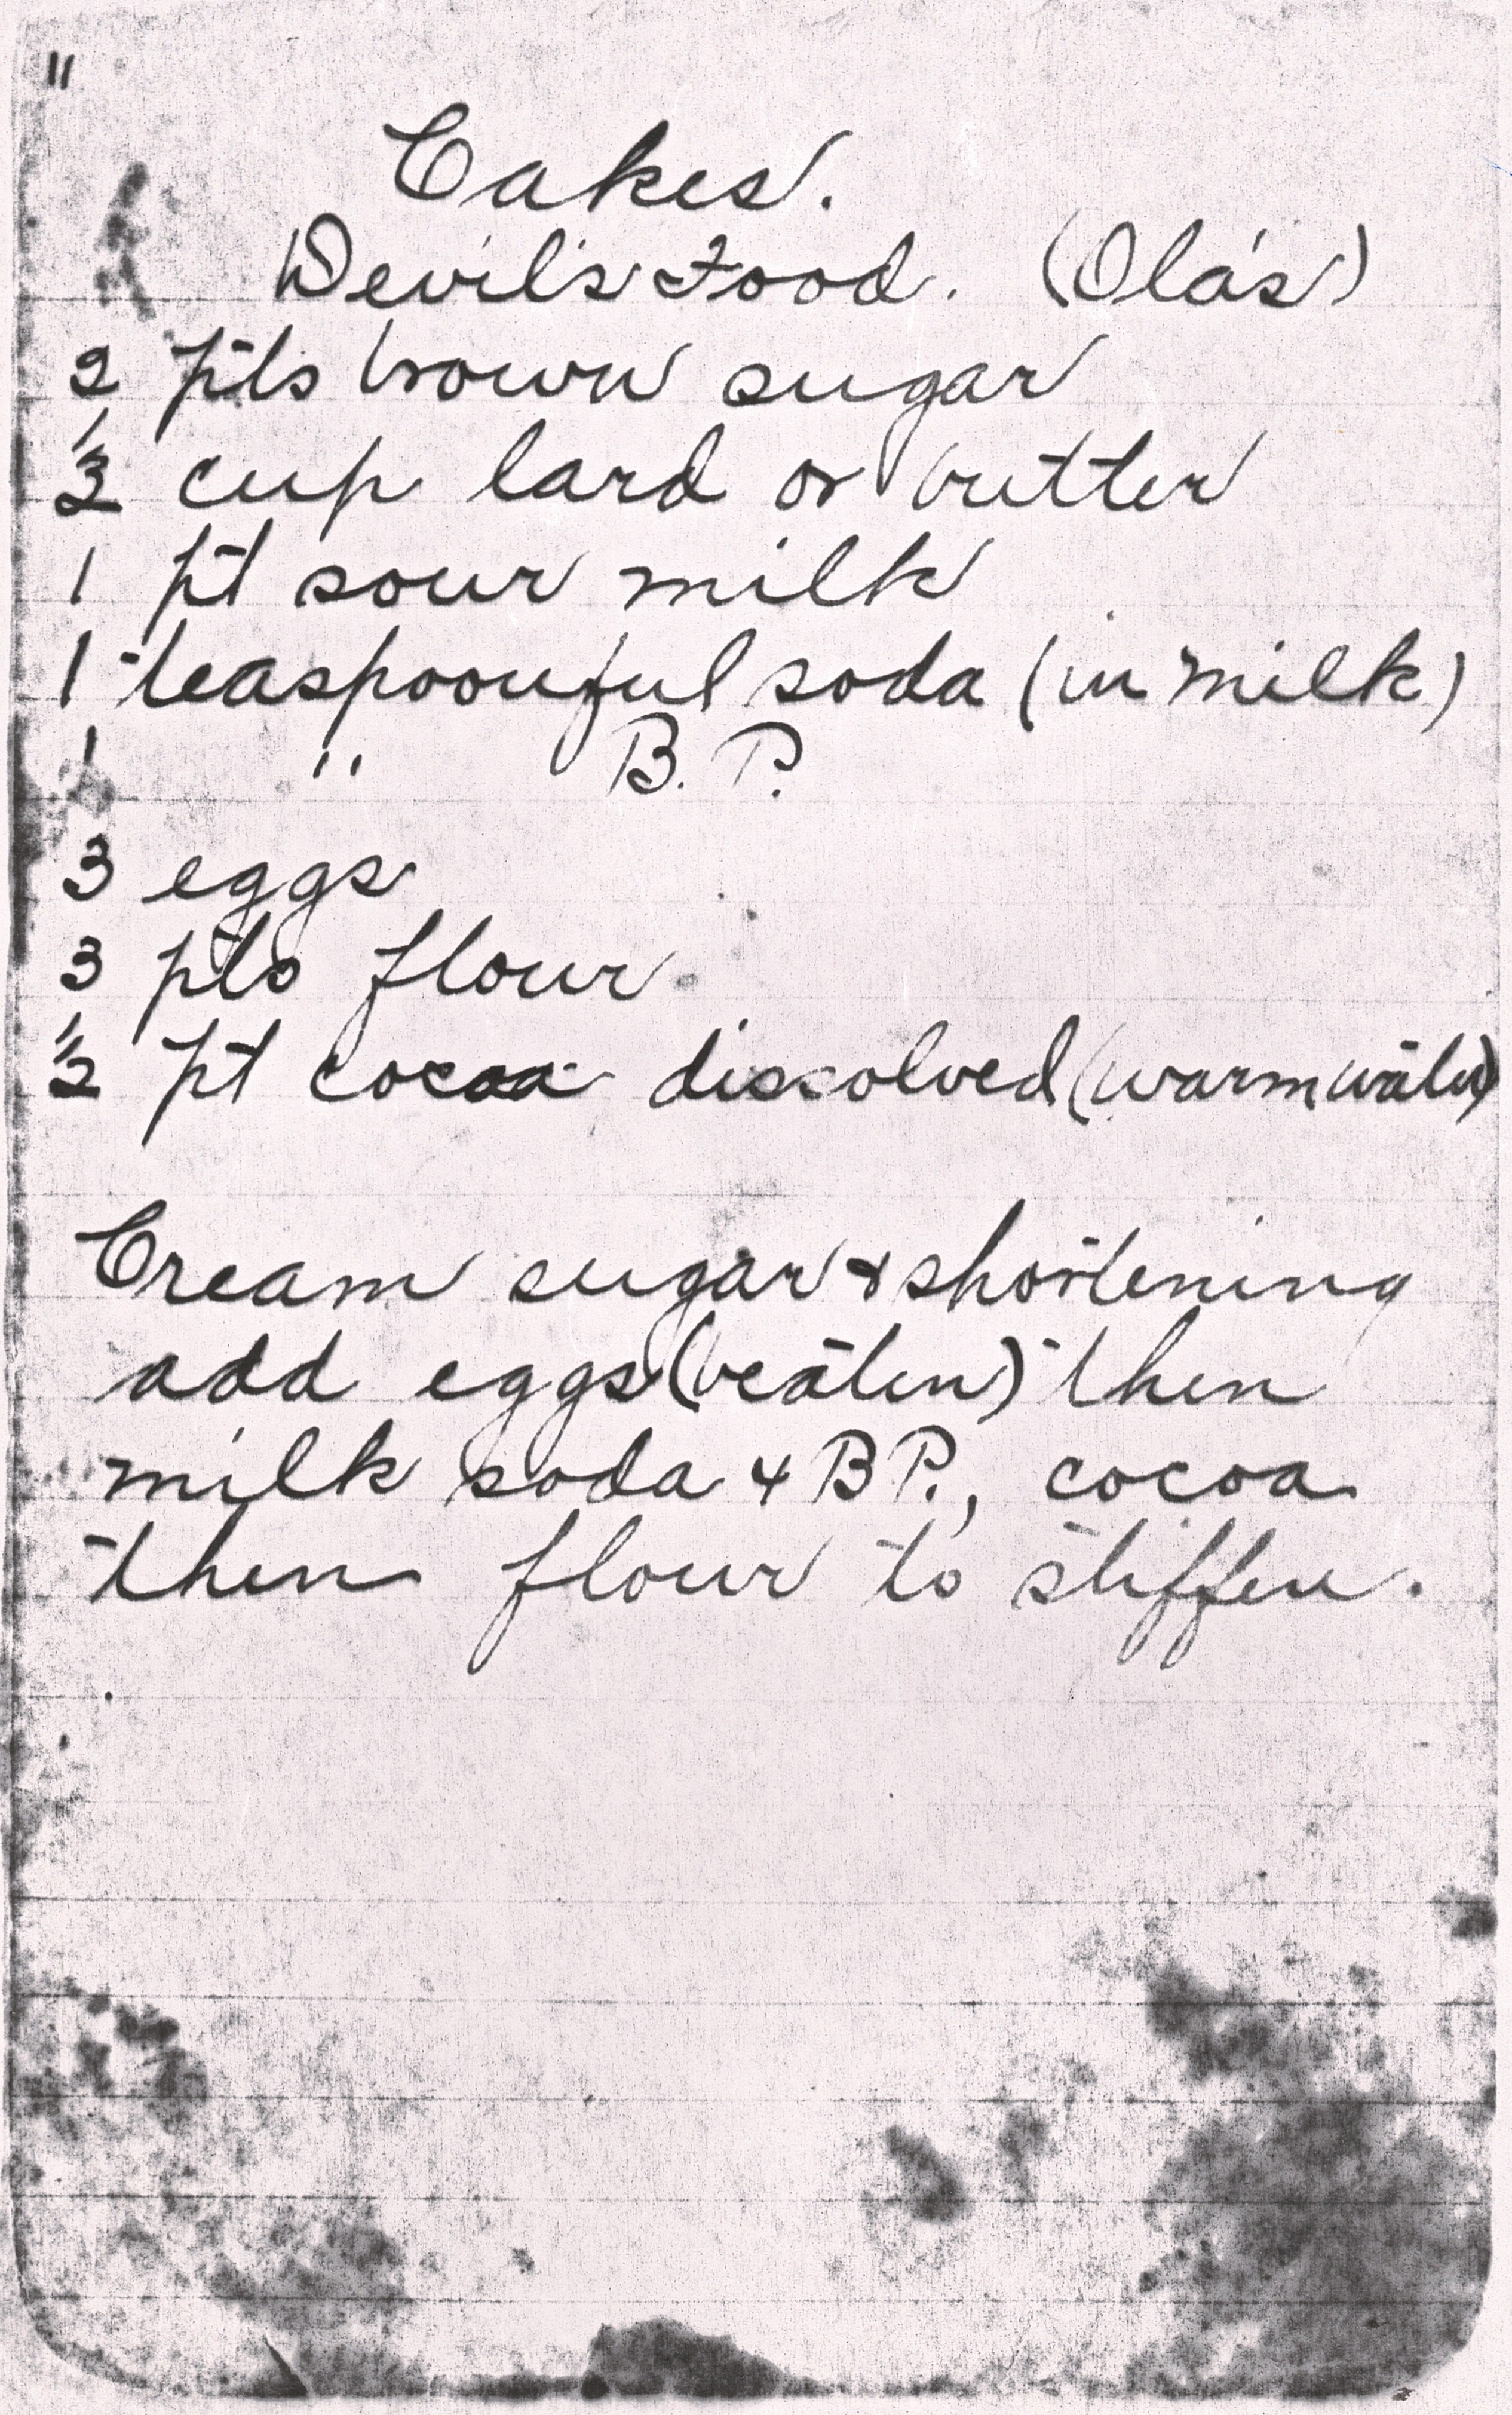 11
Cakes.
Devil's Food. (Ola's)
2 pts brown sugar
1/2 cup lard or butter
1 pt sour milk
1 teaspoonful soda (in milk)
1 " B. P.
3 eggs
3 pts flour
1/2 pt cocoa dissolved (warm water)
Cream sugar & shortening
add eggs (beaten) then
milk soda & B P., cocoa
then flour to stiffen.